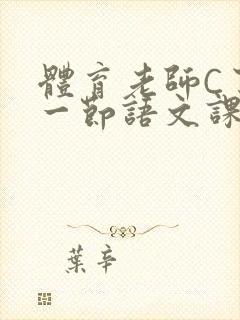 體育老師C
一節語文課
葉辛